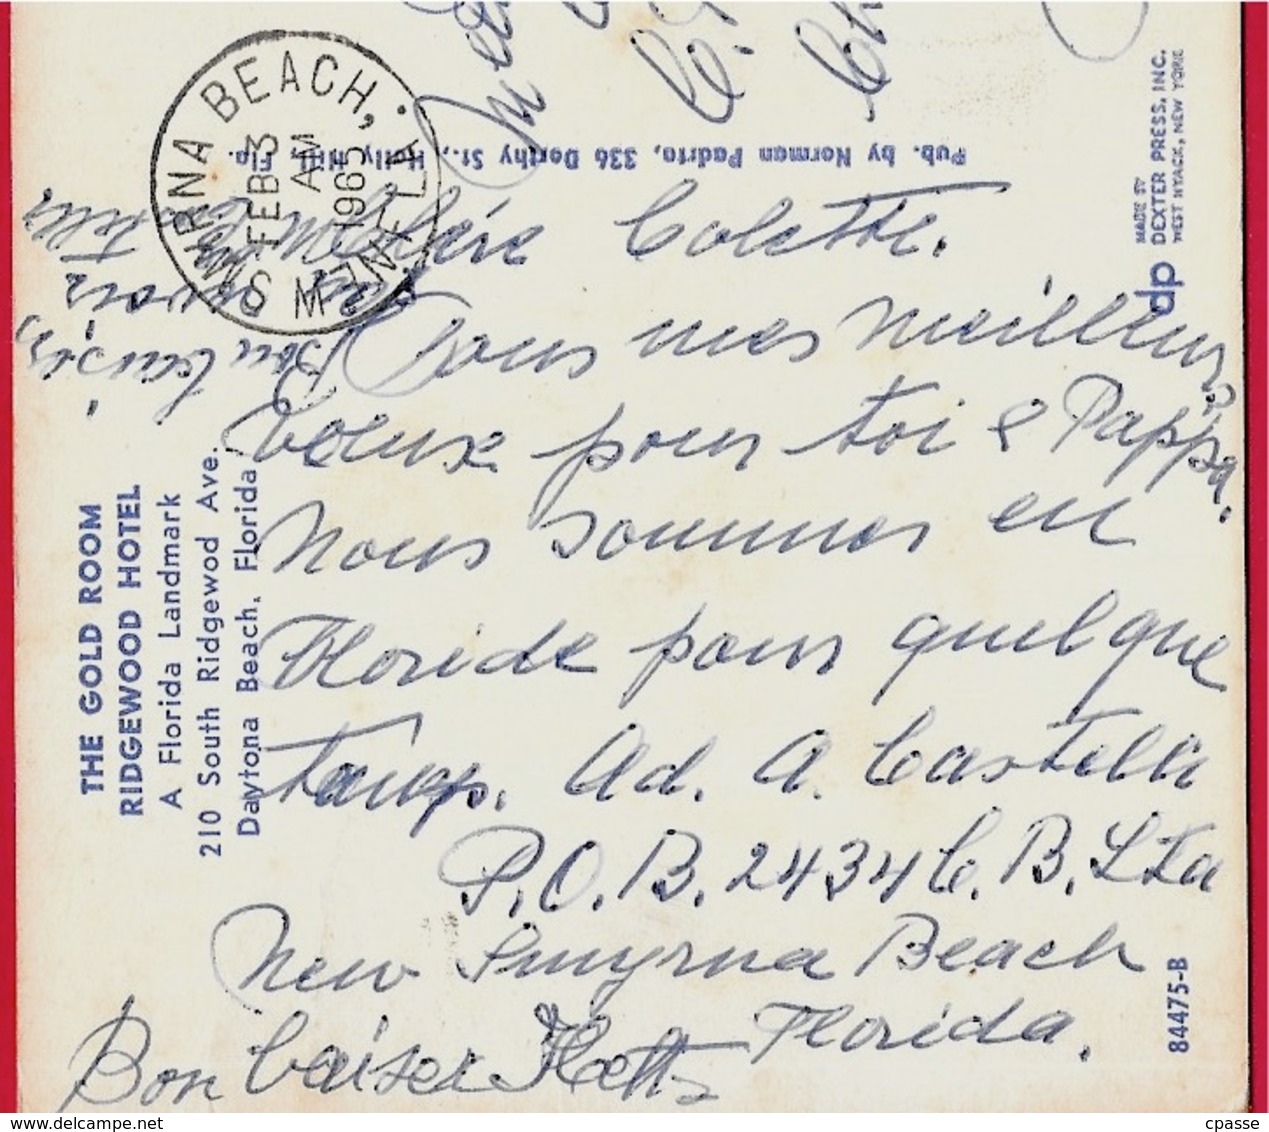 NEW SMYRNA BEACH, FLA.
FEB 3
AM
1965
Pub. by Norman Padrta, 336 Dorthy St., Holly Hill, Fla.
MADE BY
DEXTER PRESS, INC.
WEST NYACK, NEW YORK
dp
THE GOLD ROOM
RIDGEWOOD HOTEL
A Florida Landmark
210 South Ridgewood Ave.
Daytona Beach, Florida
84475-B
Colette.
Tous mes meilleurs
Voeux pour toi & Pappa.
Nous sommes en
Floride pour quelque
temps. Ad. A. Castella
P.O.B. 2434 C.B. Sta
New Smyrna Beach
Florida.
Bon baiser
cpasse
www.delcampe.net